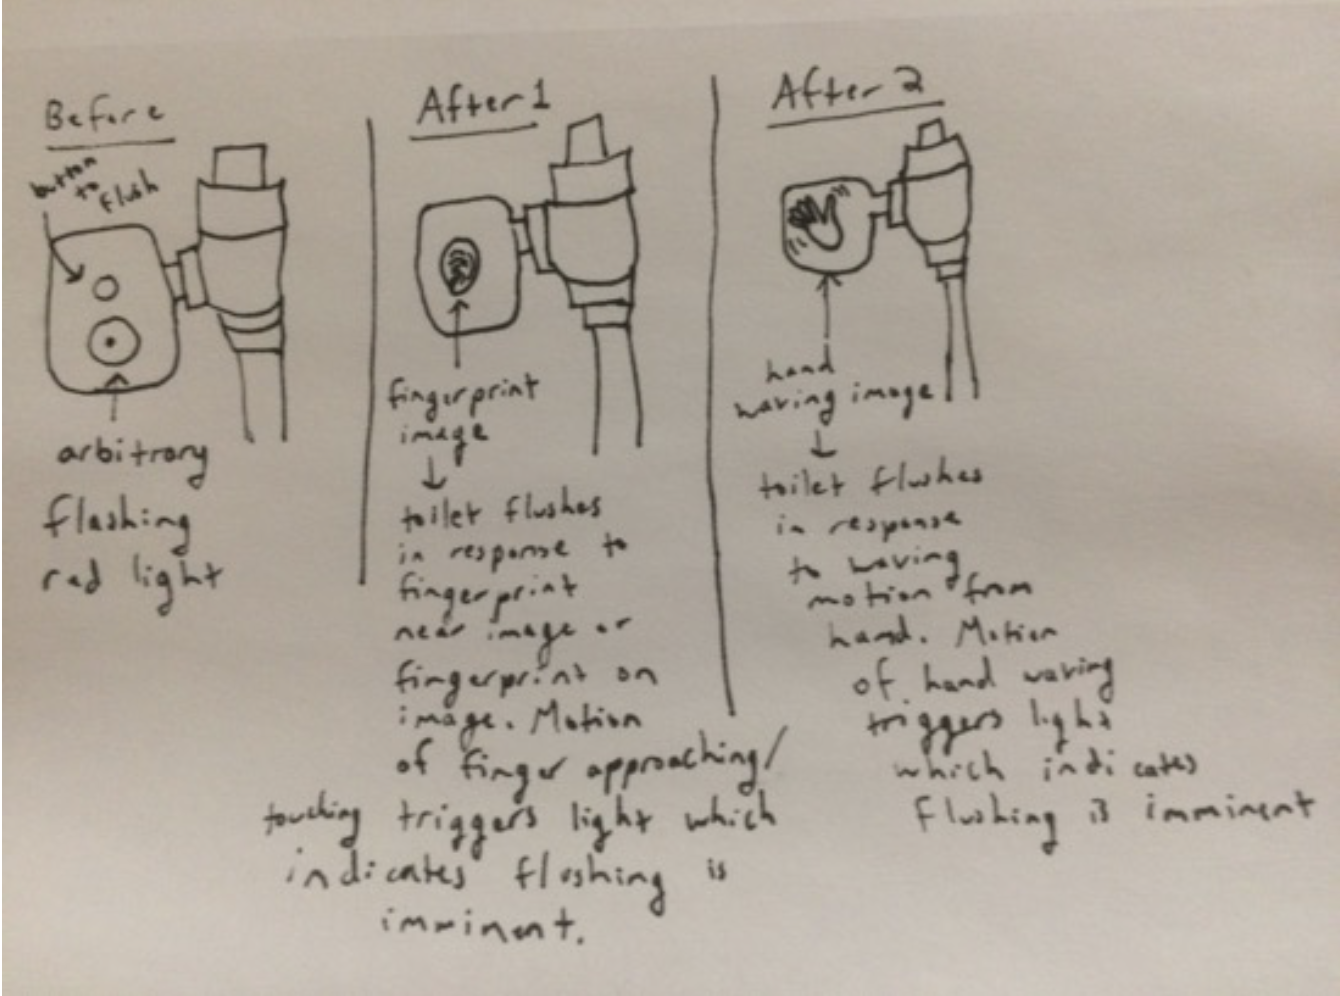 Before
button
to
flush
arbitrary
flashing
red light
After 1
fingerprint
image
toilet flushes
in response to
fingerprint
near image or
fingerprint on
image. Motion
of finger approaching/
touching triggers light which
indicates flushing is
imminent.
After 2
hand
waving image
toilet flushes
in response
to waving
motion from
hand. Motion
of hand waving
triggers light
which indicates
flushing is imminent